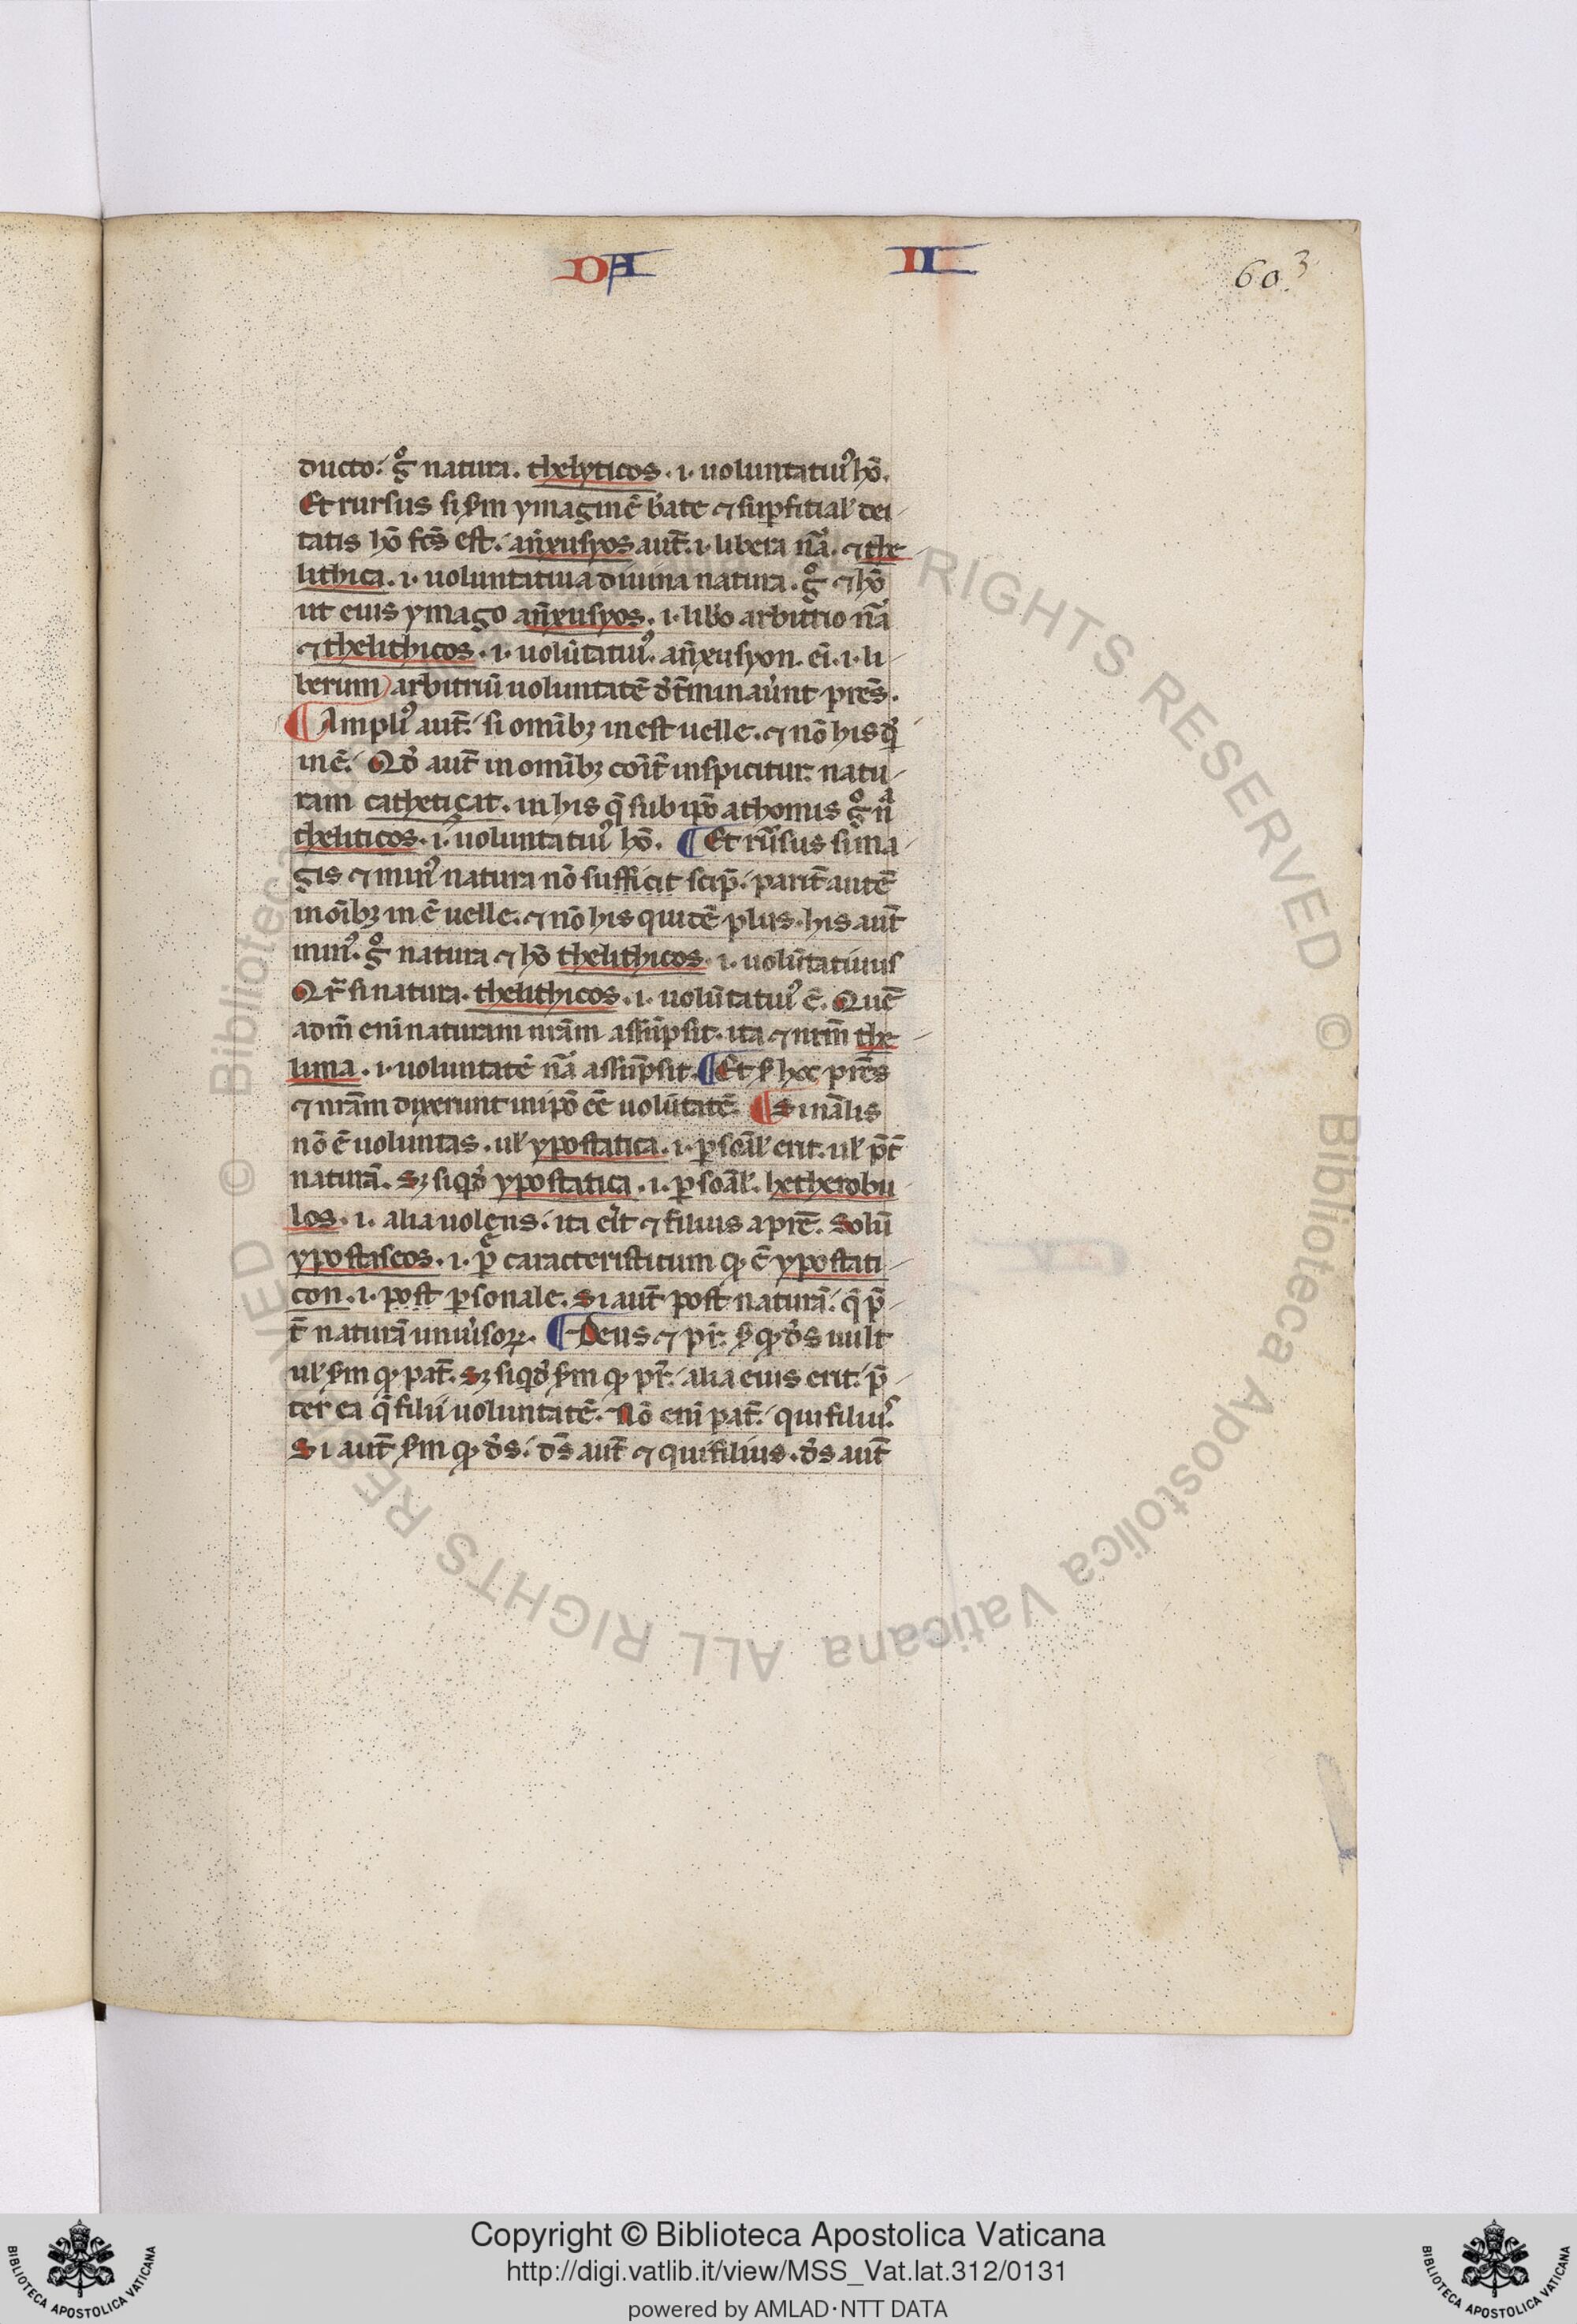 DA II 60.3
ducto: g̊ natura. thelyticos .i. uoluntatiuꝰ hō.
Et rursus si s̄m ymaginē b̓ate ⁊ suꝑfitial̓ dei
tatis hō fc̄s est. an̄xusyos aut̄ .i. libera nā. ⁊ the
lithica .i. uoluntatiua diuina natura. g̊ ⁊ hō
ut eius ymago an̄xusyos .i. lib̓o arbitrio nā
⁊ thelithicos .i. uolūtatiuꝰ. an̄xusyon. ei̅ .i. li
berum arbitriū uoluntatē d̓t̄minauer̄nt pr̄es.
¶ Ampliꝰ aut̄. si om̄ibꝫ inest uelle. ⁊ nō his q̇dē
in ē. Qd̓ aut̄ in om̄ibꝫ cōit̄ inspicitur. natu
ram catheticat. in his q̄ sub ip̄o athomus g̊ nᵃ
theliticos .i. uoluntatiuꝰ hō. ¶ Et rur̄sus si ma
gis ⁊ minꝰ natura nō sufficit scip̄. parit̄ autē
in oībꝫ in ē uelle. ⁊ nō his quidē plus. his aut̄
minꝰ. g̊ natura ⁊ hō thelithicos .i. uolūtatiuus
Qr̄ si natura. thelithicos .i. uolūtatiuꝰ ē. Quē
adm̄ eni̅ naturam nr̄am assūpsit. ita ⁊ nr̄m the
lima .i. uoluntatē nā assūpsit. ¶ Et s̄ hoc pr̄es
⁊ nr̄am dixerunt in ip̄o eē uolūtatē. ¶ Si nālis
nō ē uoluntas. ul̓ ypostatica .i. ꝑsoāl̓ erit. ul̓ p̄t̄
naturā. Sꝫ siqd̓ ypostatica .i. ꝑsoāl̓. hetherobu
los .i. alia uolens. ita er̓it ⁊ filius a pr̄e. Solū
ypostaseos .i. p̄ caracteristicum qꝫ ē ypostati
con .i. post ꝑsonale. Si aut̄ post naturā. q̄ p̄
t̄ naturā uniu̓soꝝ. ¶ Deus ⁊ pr̄. s̄ qꝫ d̓s uult
ul̓ s̄m qꝫ pat̄. Sꝫ siqd̓ s̄m qꝫ pr̄. alia eius erit. p̄
ter ea q̄ filii uoluntatē. Nō eni̅ pat̄. qui filiuꝰ.
Si aut̄ s̄m qꝫ d̓s. d̄s aut̄ ⁊ qui filius. d̓s aut̄
© Biblioteca Apostolica Vaticana ALL RIGHTS RESERVED
Copyright © Biblioteca Apostolica Vaticana
http://digi.vatlib.it/view/MSS_Vat.lat.312/0131
powered by AMLAD·NTT DATA
BIBLIOTECA APOSTOLICA VATICANA
BIBLIOTECA APOSTOLICA VATICANA